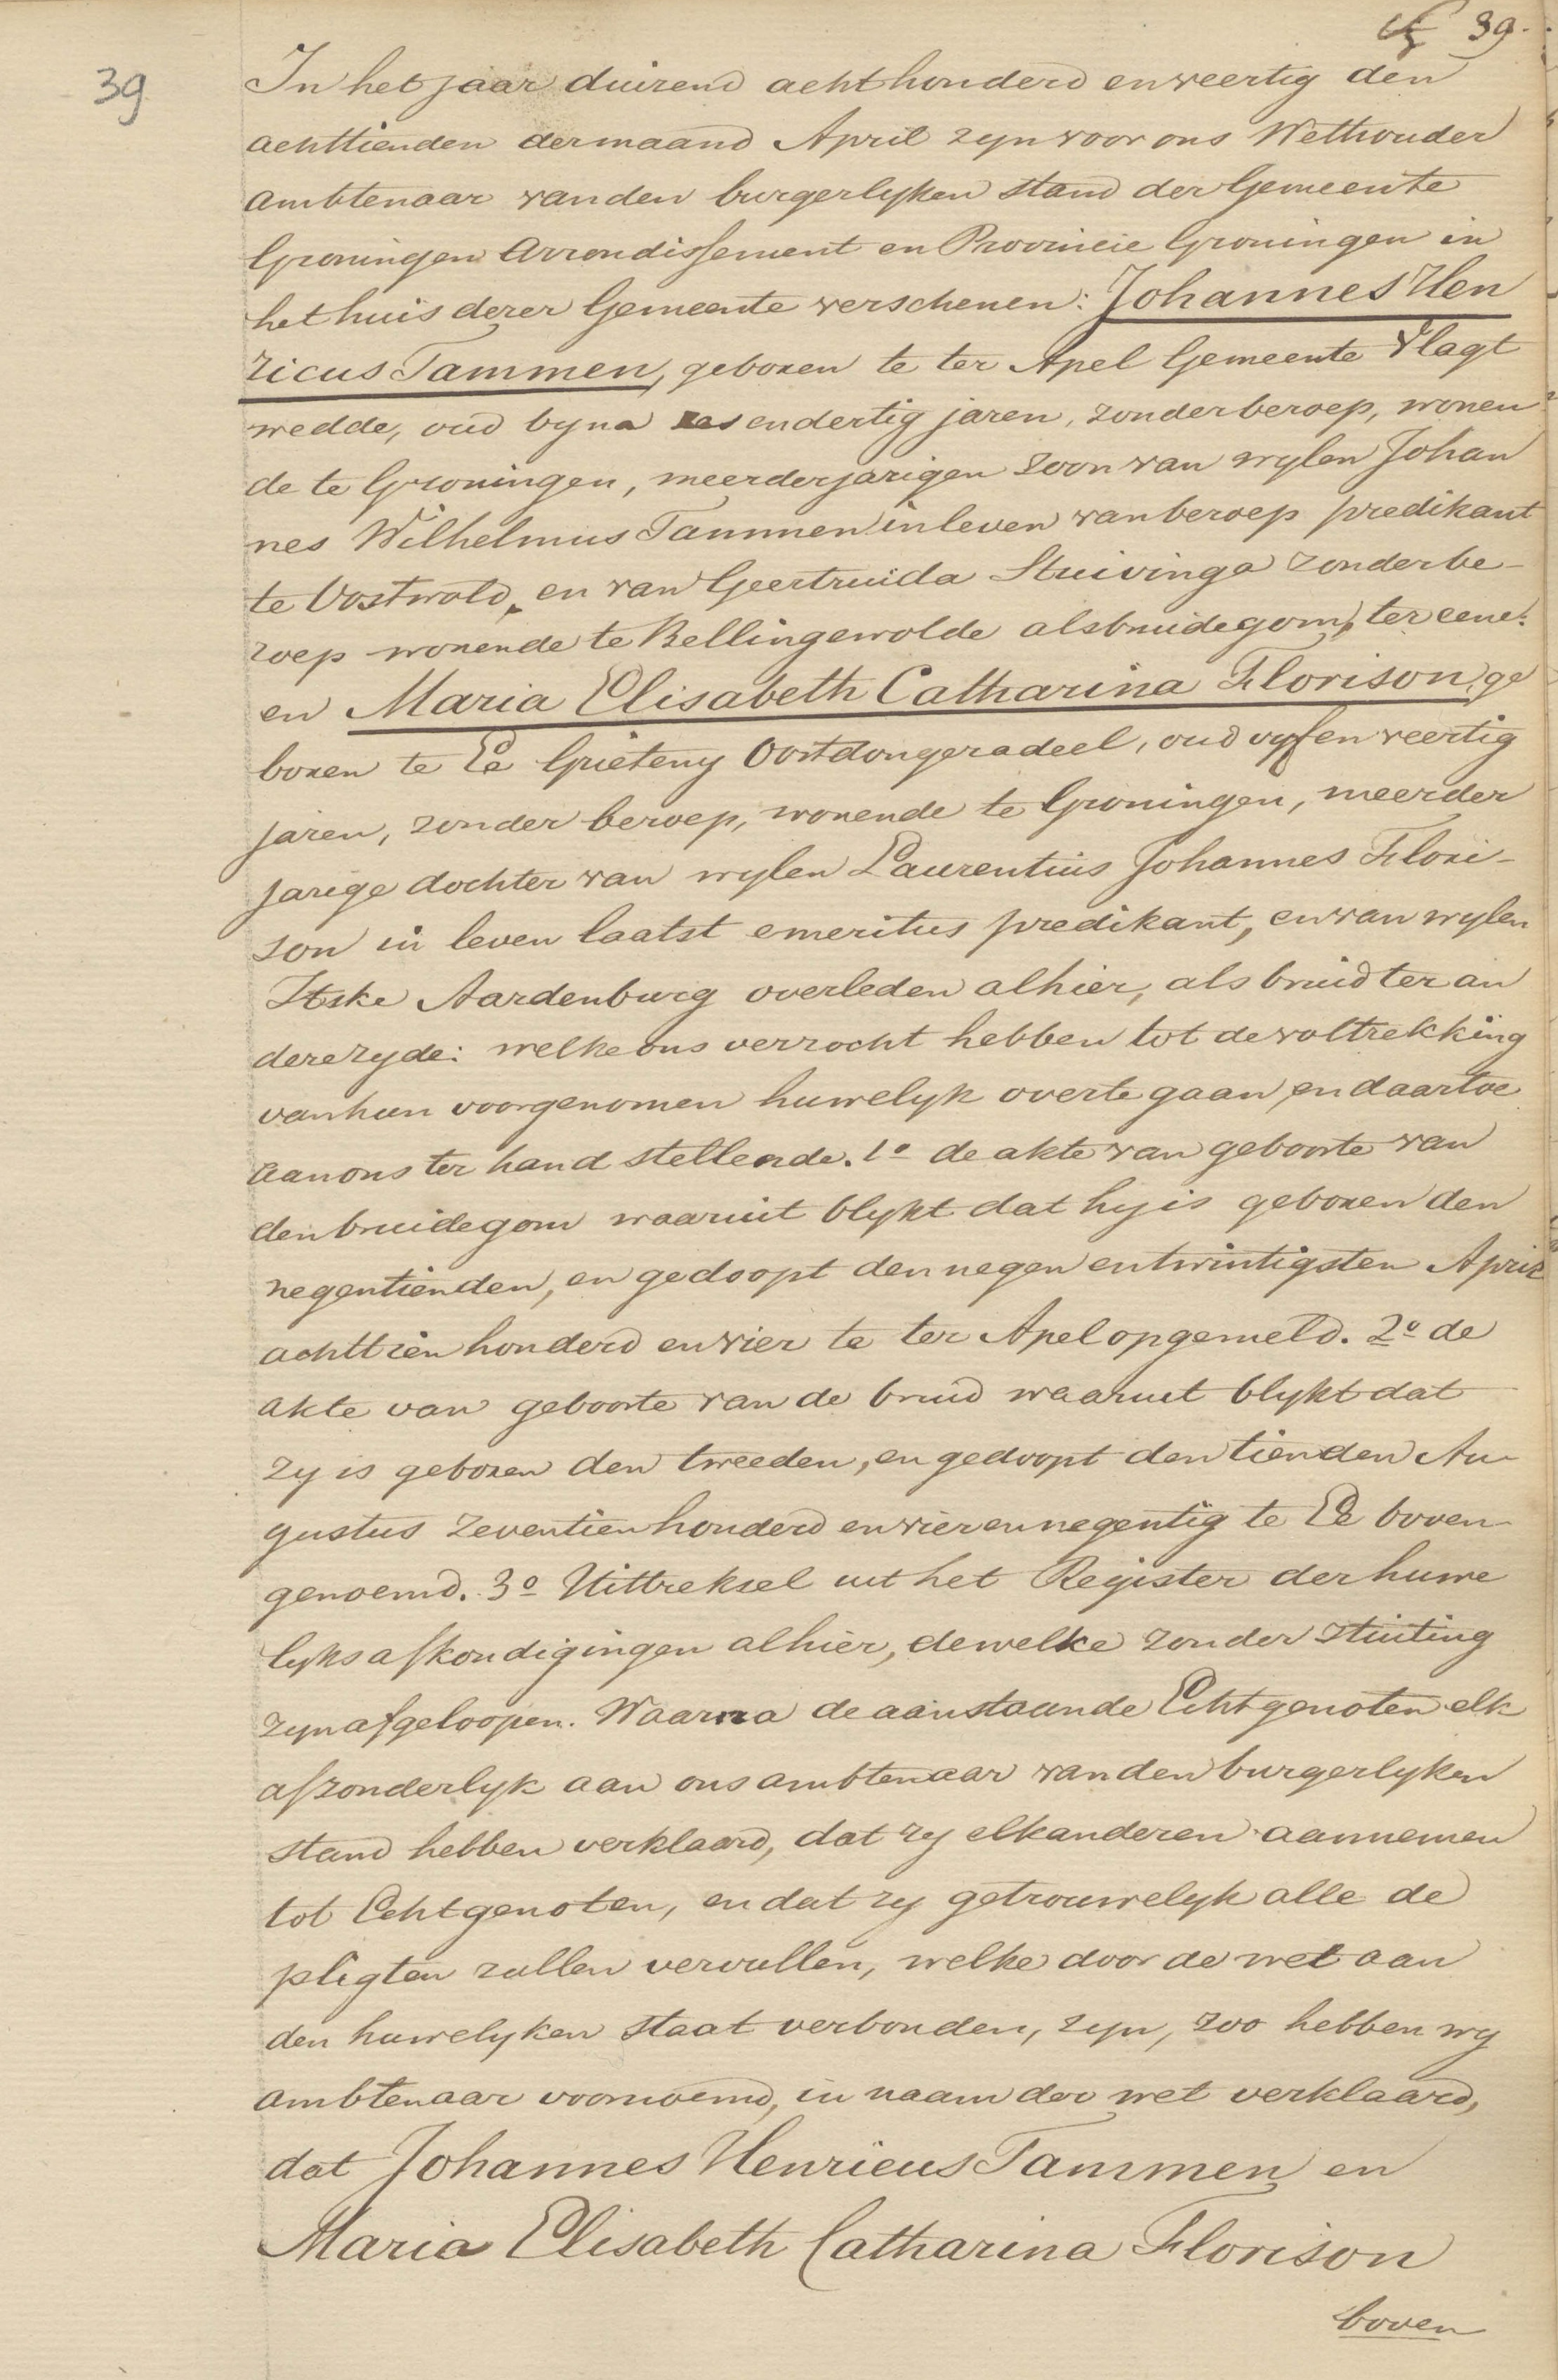 39.
39
In het jaar duizend acht honderd en veertig den
achttienden der maand April zyn voor ons Wethouder
ambtenaar van den burgerlyken stand der Gemeente
Groningen Arrondissement en Provincie Groningen in
het huis dezer Gemeente verschenen: Johannes Hen
ricus Tammen, geboren te ter Apel Gemeente Vlagt
wedde, oud byna zes en dertig jaren, zonder beroep, wonen
de te Groningen, meerderjarigen zoon van wylen Johan
nes Wilhelmus Tammen in leven van beroep predikant
te Oostwold, en van Geertruida Stuivinga zonder be-
roep wonende te Bellingewolde als bruidegom, ter eene:
en Maria Elisabeth Catharina Florison, ge
boren te Ee Grieteny Oostdongeradeel, oud vyf en veertig
jaren, zonder beroep, wonende te Groningen, meerder
jarige dochter van wylen Laurentius Johannes Flori-
son in leven laatst emeritus predikant, en van wylen
Itske Aardenburg overleden alhier, als bruid ter an
dere zyde: welke ons verzocht hebben tot de voltrekking
van hun voorgenomen huwelyk over te gaan, en daartoe
aan ons ter hand stellende. 1o de akte van geboorte van
den bruidegom waaruit blykt dat hy is geboren den
negentienden, en gedoopt den negen en twintigsten April
achttien honderd en vier te ter Apel opgemeld. 2o de
akte van geboorte van de bruid waaruit blykt dat
zy is geboren den tweeden, en gedoopt den tienden Au-
gustus zeventien honderd en vier en negentig te Ee boven-
genoemd. 3o Uittreksel uit het Register der huwe
lyks afkondigingen alhier, dewelke zonder stuiting
zyn afgeloopen. Waarna de aanstaande Echtgenoten elk
afzonderlyk aan ons ambtenaar van den burgerlyken
stand hebben verklaard, dat zy elkanderen aannemen
tot Echtgenoten, en dat zy getrouwelyk alle de
pligten zullen vervullen, welke door de wet aan
den huwelyken staat verbonden, zyn, zoo hebben wy
ambtenaar voornoemd, in naam der wet verklaard,
dat Johannes Henricus Tammen en
Maria Elisabeth Catharina Florison
boven